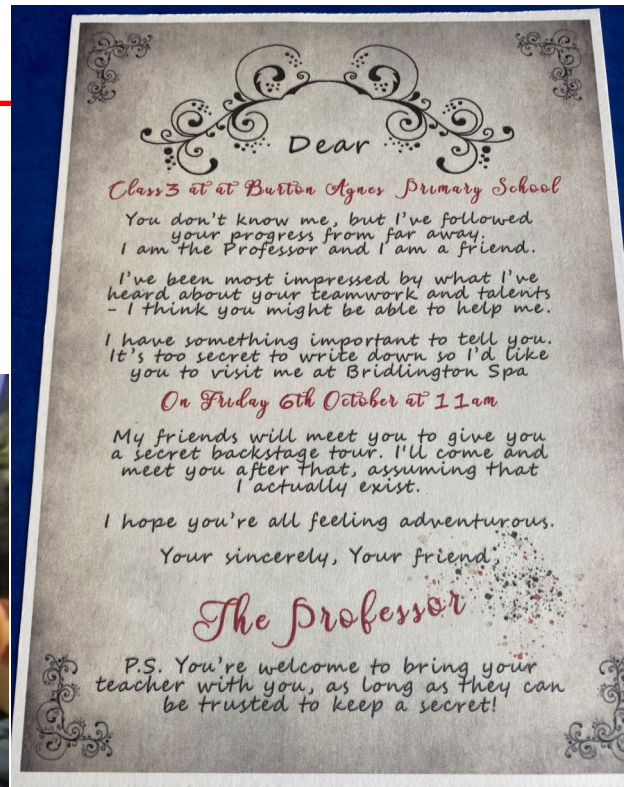 Dear
Class 3 at at Burton Agnes Primary School
You don't know me, but I've followed
your progress from far away.
I am the Professor and I am a friend.
I've been most impressed by what I've
heard about your teamwork and talents
- I think you might be able to help me.
I have something important to tell you.
It's too secret to write down so I'd like
you to visit me at Bridlington Spa
On Friday 6th October at 11am
My friends will meet you to give you
a secret backstage tour. I'll come and
meet you after that, assuming that
I actually exist.
I hope you're all feeling adventurous.
Your sincerely, Your friend,
The Professor
P.S. You're welcome to bring your
teacher with you, as long as they can
be trusted to keep a secret!